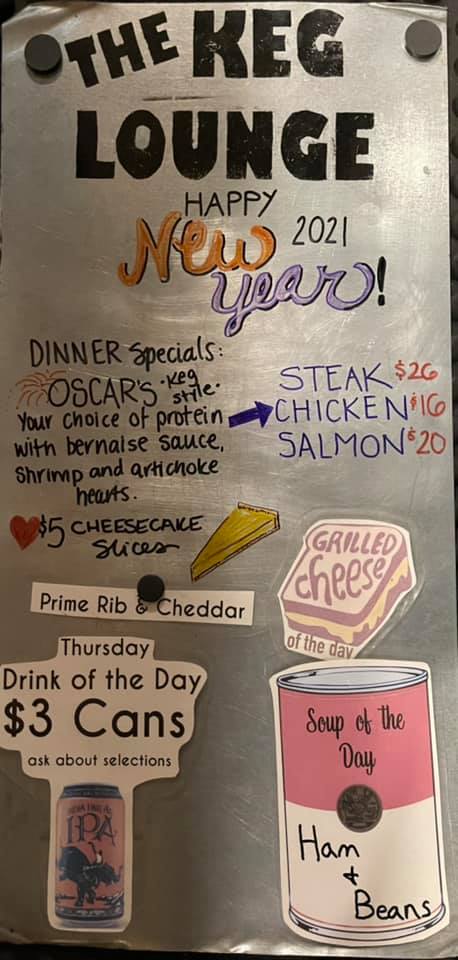 THE KEG
LOUNGE
HAPPY
New 2021
year!
DINNER Specials:
OSCAR'S ·Keg style·
Your choice of protein
with bernaise sauce,
Shrimp and artichoke
hearts.
STEAK $26
CHICKEN $16
SALMON $20
$5 CHEESECAKE
Slices
GRILLED
cheese
of the day
Prime Rib & Cheddar
Thursday
Drink of the Day
$3 Cans
ask about selections
INDIA PALE ALE
IPA
Soup of the
Day
Ham
+
Beans